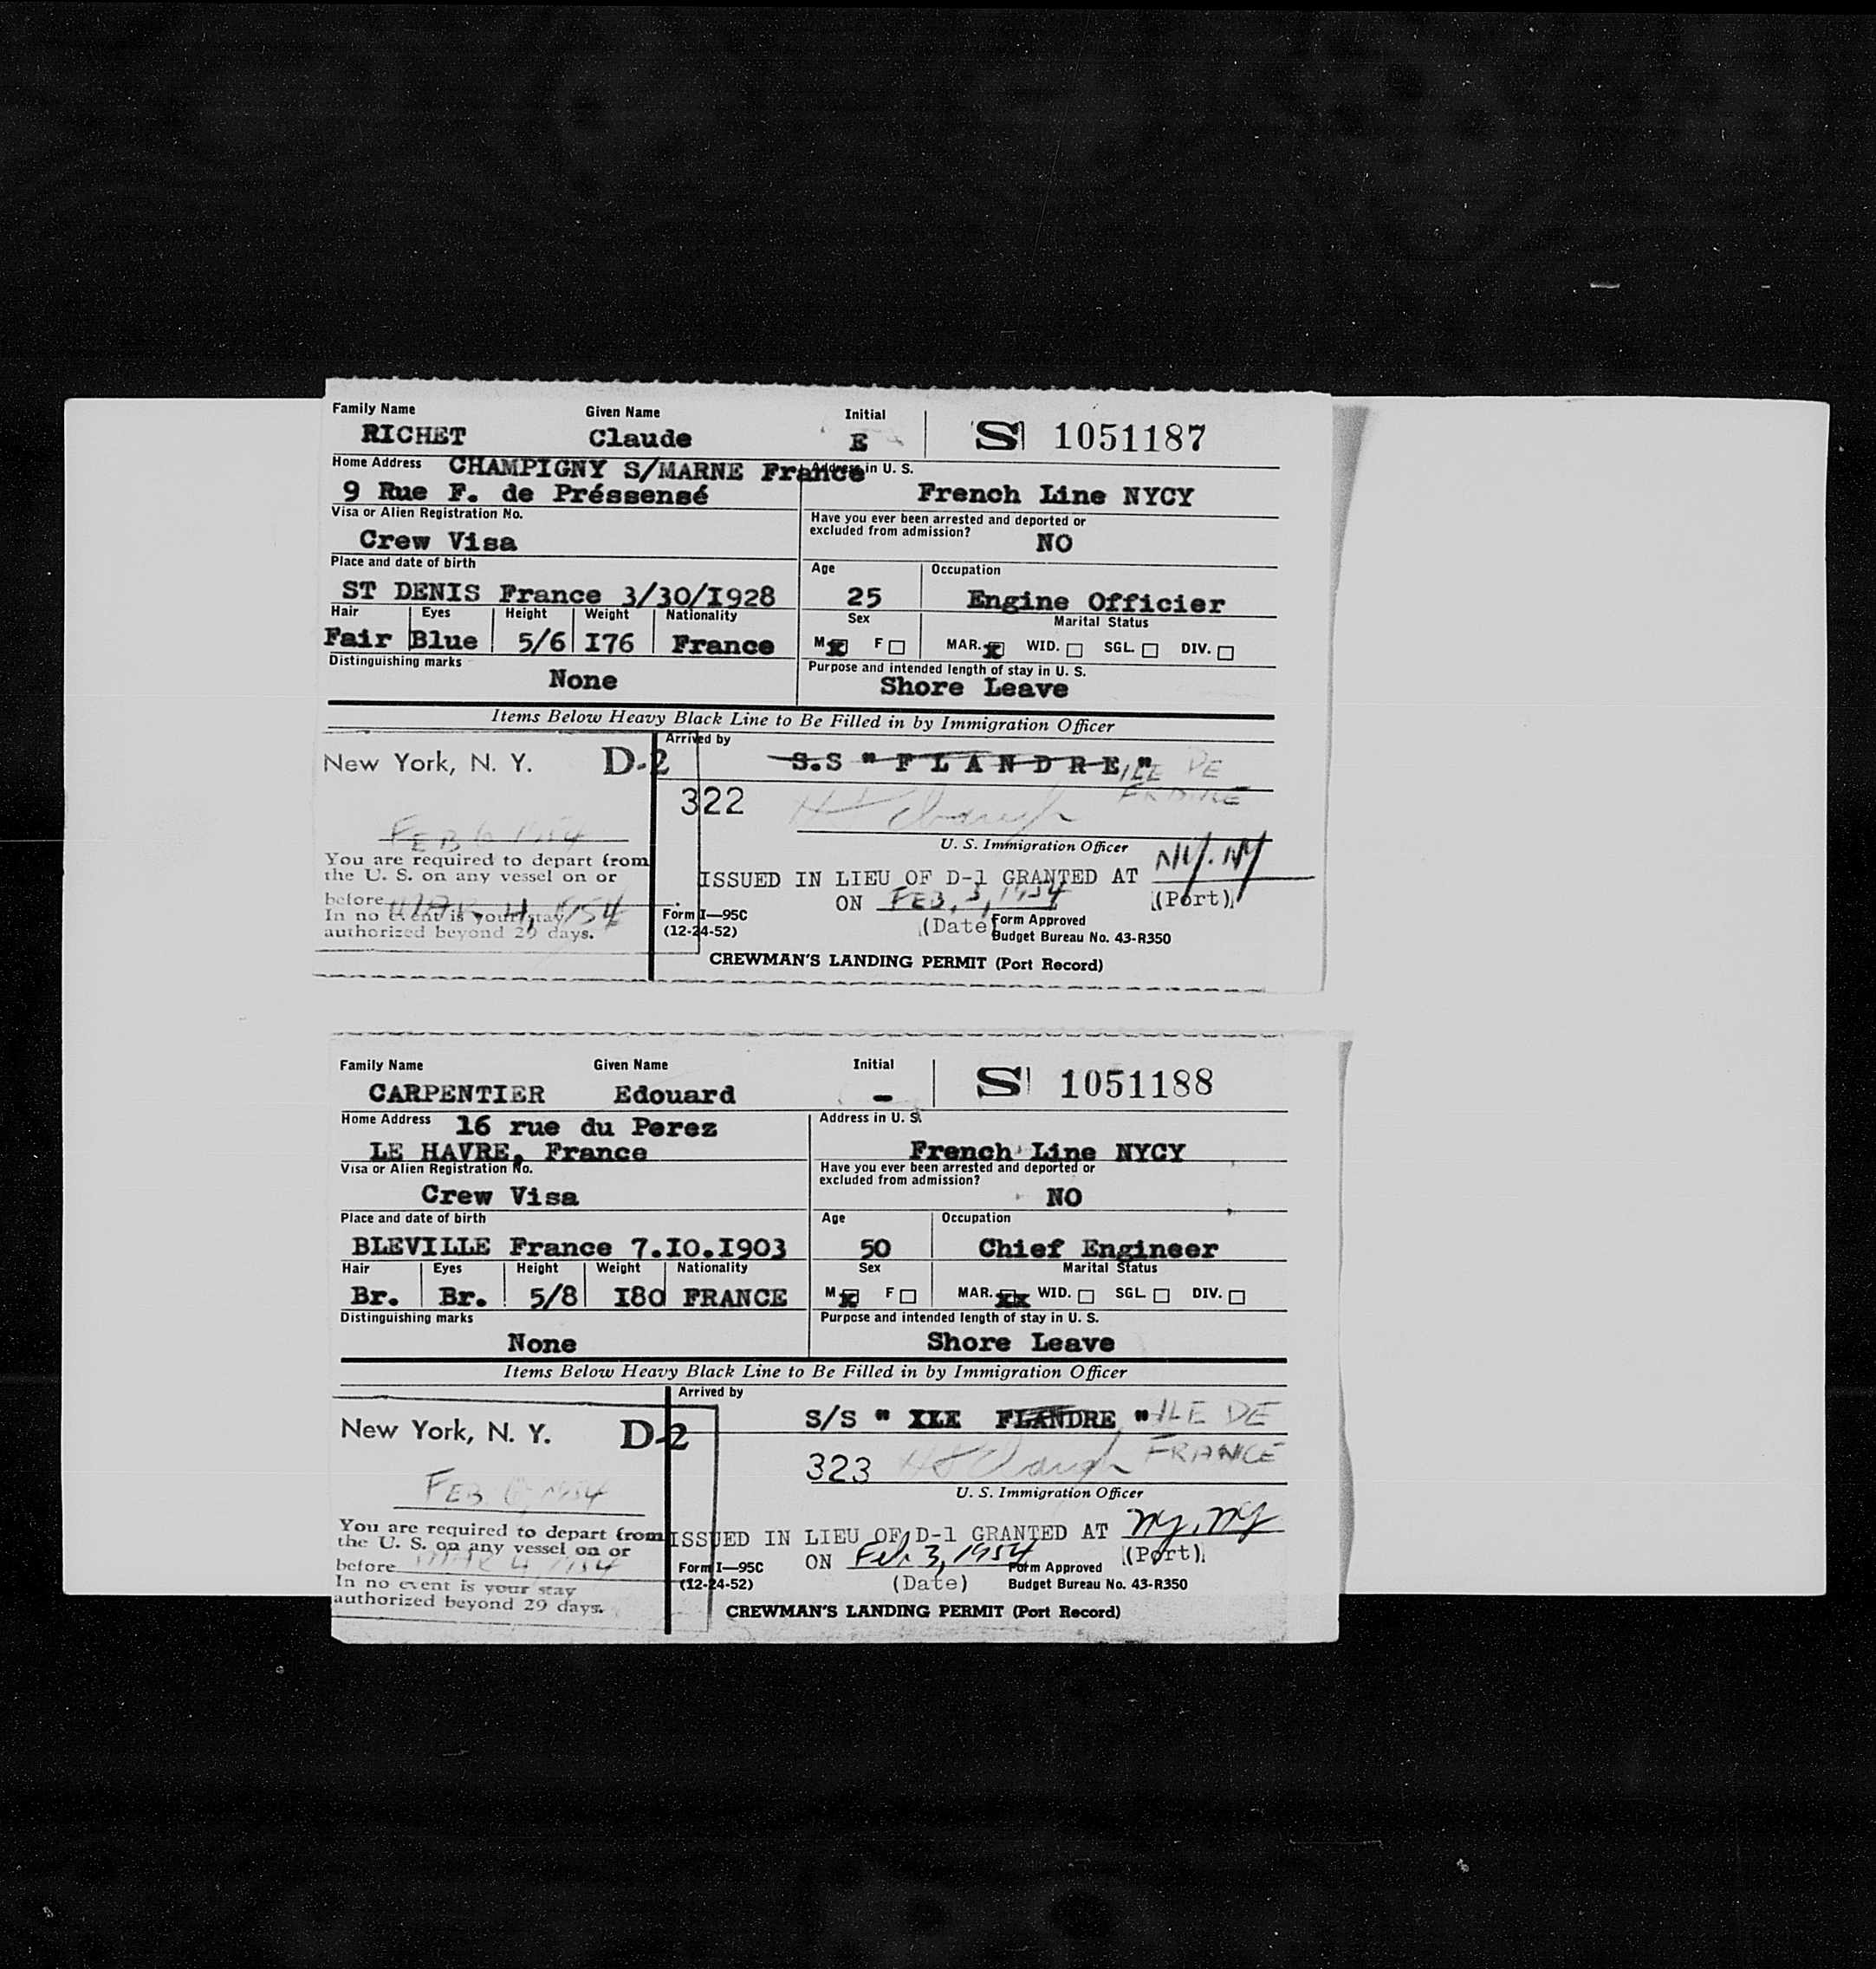 Family Name Given Name Initial
RICHET Claude E S 1051187
Home Address CHAMPIGNY S/MARNE France Address in U. S.
9 Rue F. de Préssensé French Line NYCY
Visa or Alien Registration No. Have you ever been arrested and deported or
excluded from admission?
Crew Visa NO
Place and date of birth Age Occupation
ST DENIS France 3/30/I928 25 Engine Officier
Hair Eyes Height Weight Nationality Sex Marital Status
Fair Blue 5/6 I76 France M x F MAR. x WID. SGL. DIV.
Distinguishing marks Purpose and intended length of stay in U. S.
None Shore Leave
Items Below Heavy Black Line to Be Filled in by Immigration Officer
Arrived by
New York, N. Y. D-2 S.S " F L A N D R E " ILE DE
322 FRANCE
FEB 6 1954
U. S. Immigration Officer
You are required to depart from
the U. S. on any vessel on or
ISSUED IN LIEU OF D-1 GRANTED AT NY. NY
before MAR 4, 1954 ON FEB, 3, 1954 (Port)
In no event is your stay Form I—95C (Date) Form Approved
authorized beyond 29 days. (12-24-52) Budget Bureau No. 43-R350
CREWMAN'S LANDING PERMIT (Port Record)
Family Name Given Name Initial
CARPENTIER Edouard - S 1051188
Home Address 16 rue du Perez Address in U. S.
LE HAVRE, France French Line NYCY
Visa or Alien Registration No. Have you ever been arrested and deported or
excluded from admission?
Crew Visa NO
Place and date of birth Age Occupation
BLEVILLE France 7.I0.I903 50 Chief Engineer
Hair Eyes Height Weight Nationality Sex Marital Status
Br. Br. 5/8 I80 FRANCE M x F MAR. xx WID. SGL. DIV.
Distinguishing marks Purpose and intended length of stay in U. S.
None Shore Leave
Items Below Heavy Black Line to Be Filled in by Immigration Officer
Arrived by
New York, N. Y. D-2 S/S " FLANDRE " ILE DE
323 FRANCE
FEB 6, 1954
U. S. Immigration Officer
You are required to depart from ISSUED IN LIEU OF D-1 GRANTED AT NY, NY
the U. S. on any vessel on or
before MAR 4, 1954 ON Feb 3, 1954 (Port)
In no event is your stay Form I—95C (Date) Form Approved
authorized beyond 29 days. (12-24-52) Budget Bureau No. 43-R350
CREWMAN'S LANDING PERMIT (Port Record)